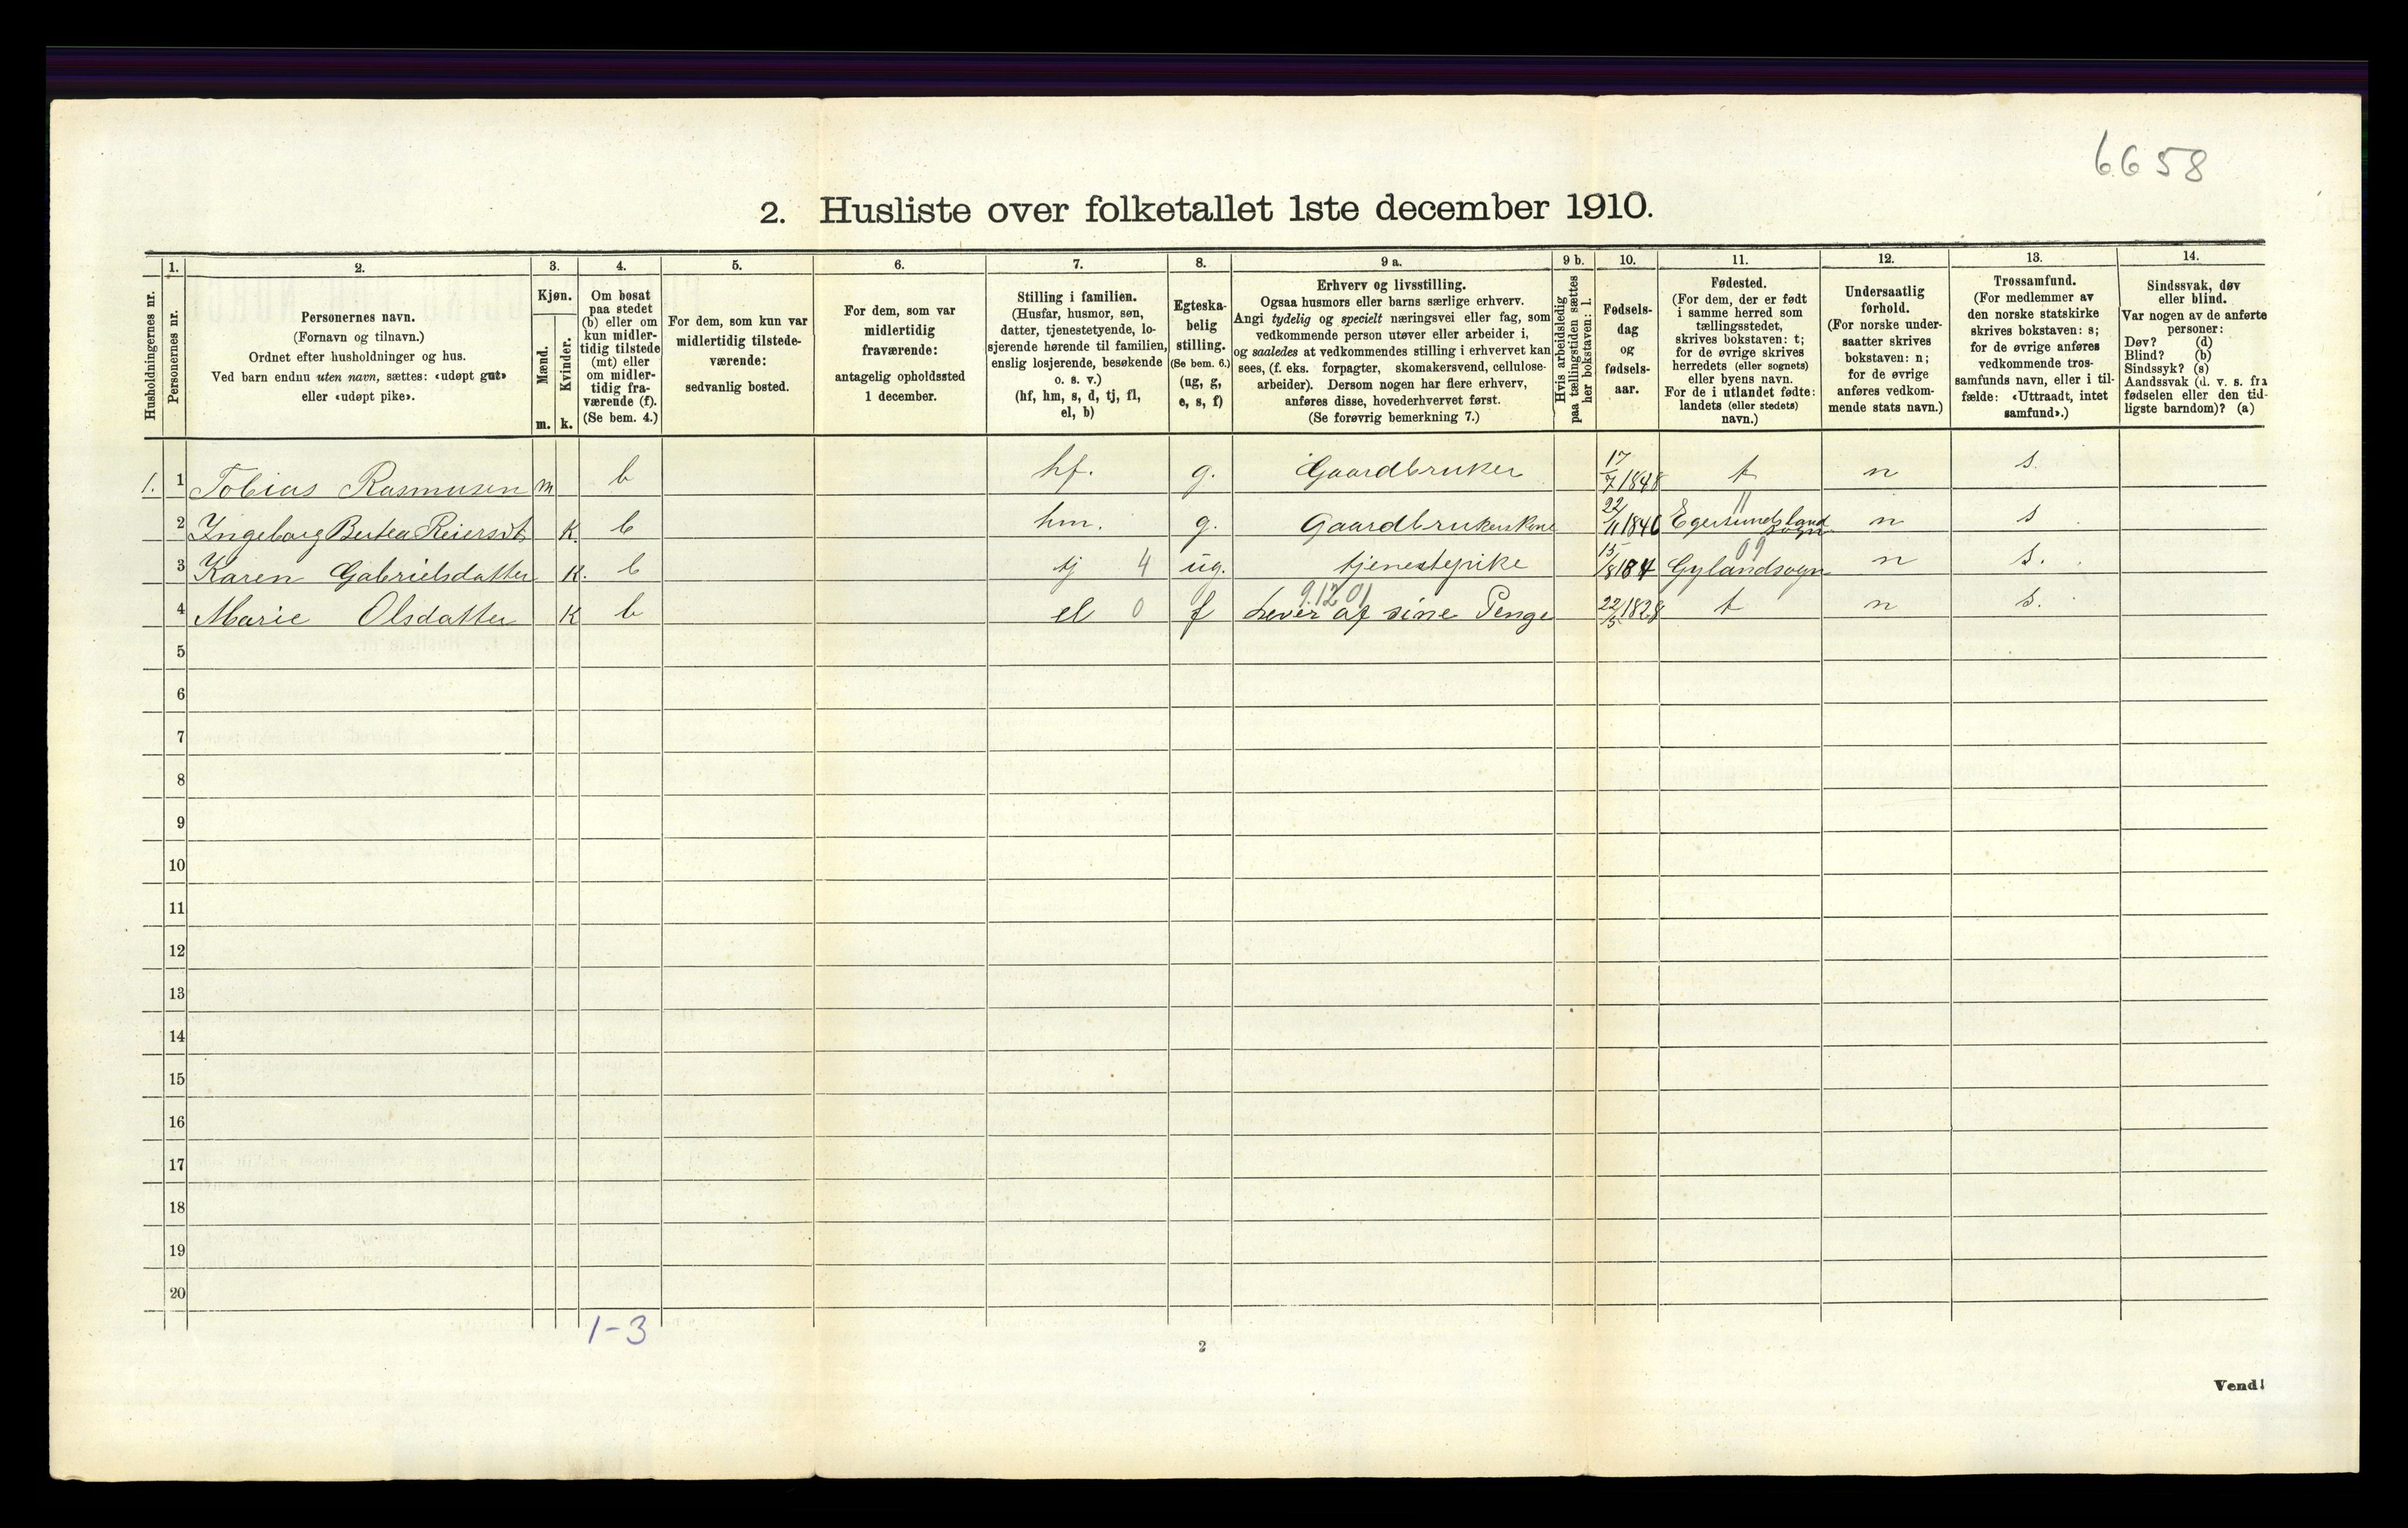 6658
2. Husliste over folketallet 1ste december 1910.
Husholdningernes nr.
1.
Personernes nr.
2.
Personernes navn.
(Fornavn og tilnavn.)
Ordnet efter husholdninger og hus.
Ved barn endnu uten navn, sættes: «udøpt gut»
eller «udøpt pike».
3.
Kjøn.
Mænd.
Kvinder.
m. k.
4.
Om bosat
paa stedet
(b) eller om
kun midler-
tidig tilstede
(mt) eller
om midler-
tidig fra-
værende (f).
(Se bem. 4.)
5.
For dem, som kun var
midlertidig tilstede-
værende:
sedvanlig bosted.
6.
For dem, som var
midlertidig
fraværende:
antagelig opholdssted
1 december.
7.
Stilling i familien.
(Husfar, husmor, søn,
datter, tjenestetyende, lo-
sjerende hørende til familien,
enslig losjerende, besøkende
o. s. v.)
(hf, hm, s, d, tj, fl,
el, b)
8.
Egteska-
belig
stilling.
(Se bem. 6.)
(ug, g,
e, s, f)
9 a.
Erhverv og livsstilling.
Ogsaa husmors eller barns særlige erhverv.
Angi tydelig og specielt næringsvei eller fag, som
vedkommende person utøver eller arbeider i,
og saaledes at vedkommendes stilling i erhvervet kan
sees, (f. eks. forpagter, skomakersvend, cellulose-
arbeider). Dersom nogen har flere erhverv,
anføres disse, hovederhvervet først.
(Se forøvrig bemerkning 7.)
9 b.
Hvis arbeidsledig
paa tællingstiden sættes
her bokstaven: l.
10.
Fødsels-
dag
og
fødsels-
aar.
11.
Fødested.
(For dem, der er født
i samme herred som
tællingsstedet,
skrives bokstaven: t;
for de øvrige skrives
herredets (eller sognets)
eller byens navn.
For de i utlandet fødte:
landets (eller stedets)
navn.)
12.
Undersaatlig
forhold.
(For norske under-
saatter skrives
bokstaven: n;
for de øvrige
anføres vedkom-
mende stats navn.)
13.
Trossamfund.
(For medlemmer av
den norske statskirke
skrives bokstaven: s;
for de øvrige anføres
vedkommende tros-
samfunds navn, eller i til-
fælde: «Uttraadt, intet
samfund».)
14.
Sindssvak, døv
eller blind.
Var nogen av de anførte
personer:
Døv? (d)
Blind? (b)
Sindssyk? (s)
Aandssvak (d. v. s. fra
fødselen eller den tid-
ligste barndom)? (a)
1. 1 Tobias Rasmusen m b hf. g. Gaardbruker 17/7 1848 t n s.
2 Ingeborg Bertea Reiersdt k. b hm. g. Gaardbrukerskone 22/11 1840 11 Egersunds land sogn n s
3 Karen Gabrielsdatter k. b tj 4 ug. tjenestepike 15/8 184 09 Gylandsogn n s.
4 Marie Olsdatter k b el 0 f 9.12 01 Lever af sine Penge 22/5 1828 t n s.
5
6
7
8
9
10
11
12
13
14
15
16
17
18
19
20
1-3
2
Vend!